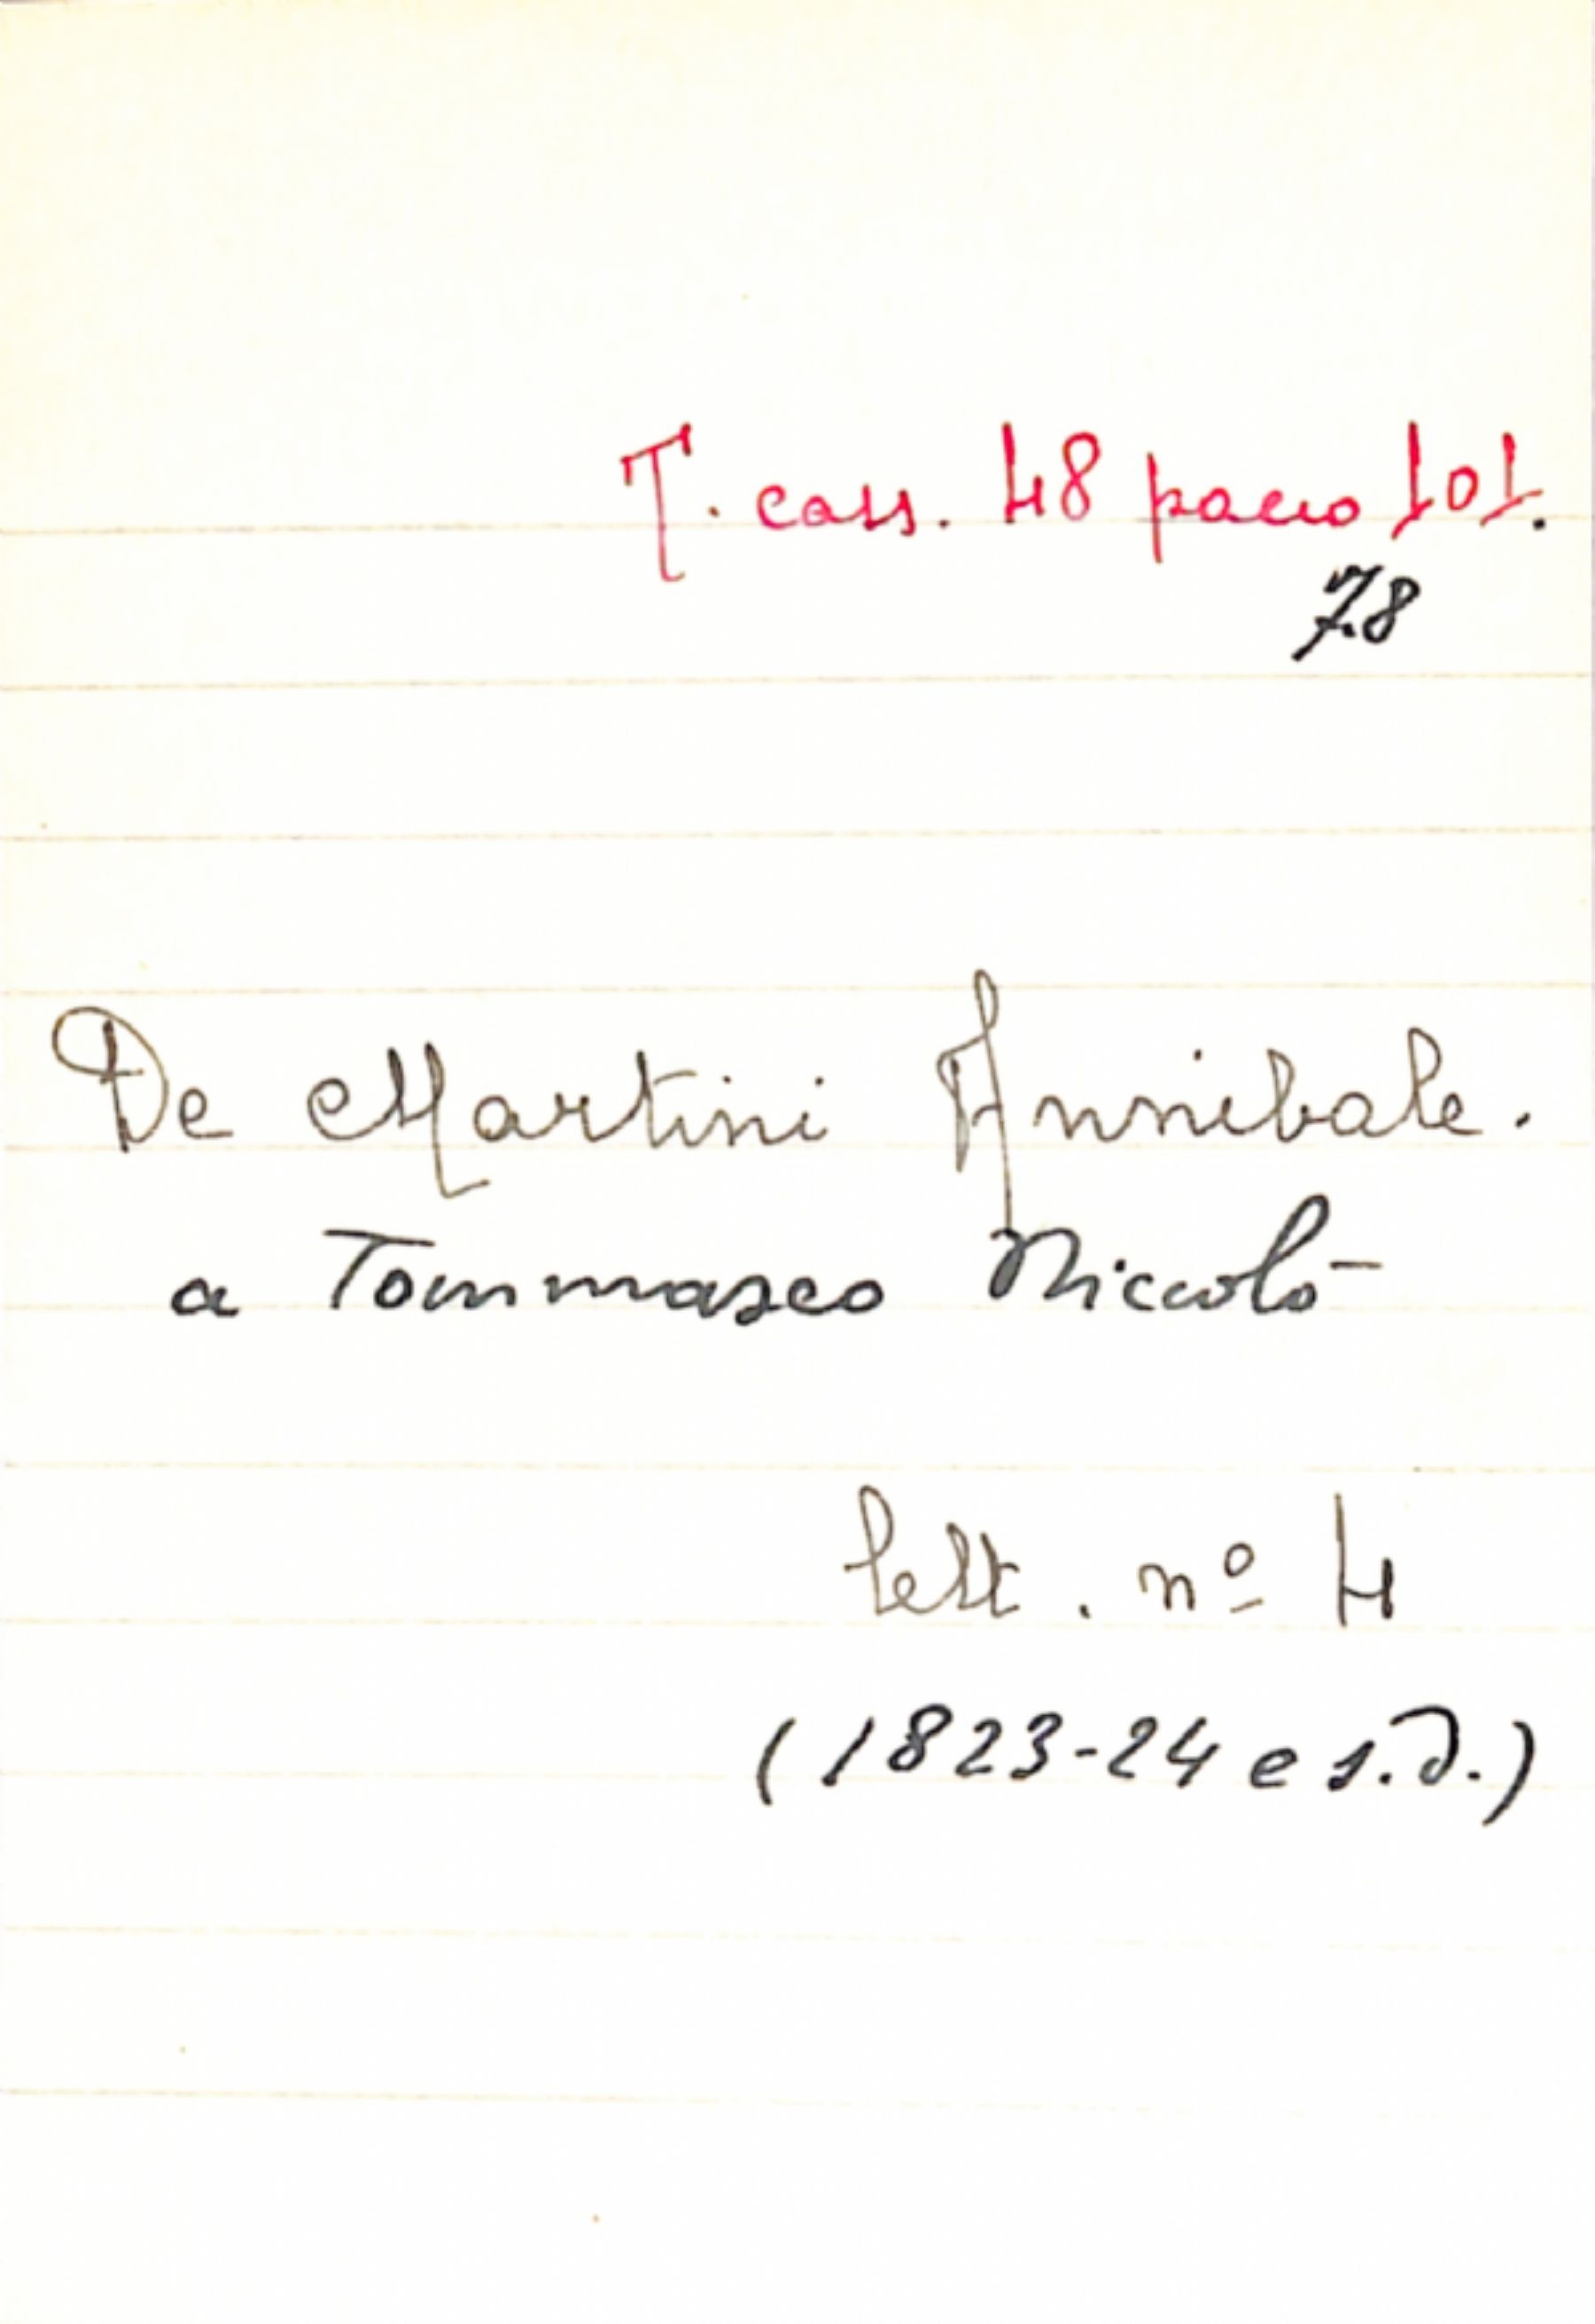 T. cass. 48 pacco 101.
7.8
De Martini Annibale.
a Tommaseo Niccolò
lett. nº 4
(1823-24 e s.d.)